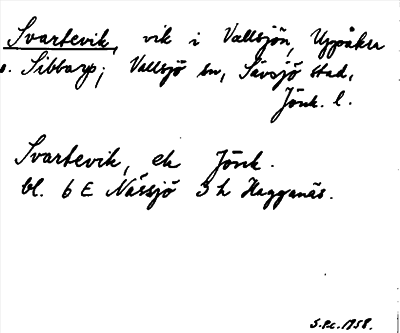 Svartevik, vik i Vallsjön, Uppåker
o. Sibbarp; Vallsjö sn, Sävsjö stad,
Jönk. l.
Svartevik, ek Jönk.
bl. 6 E Nässjö 3 h Hagganäs.
S.Pc. 1958.